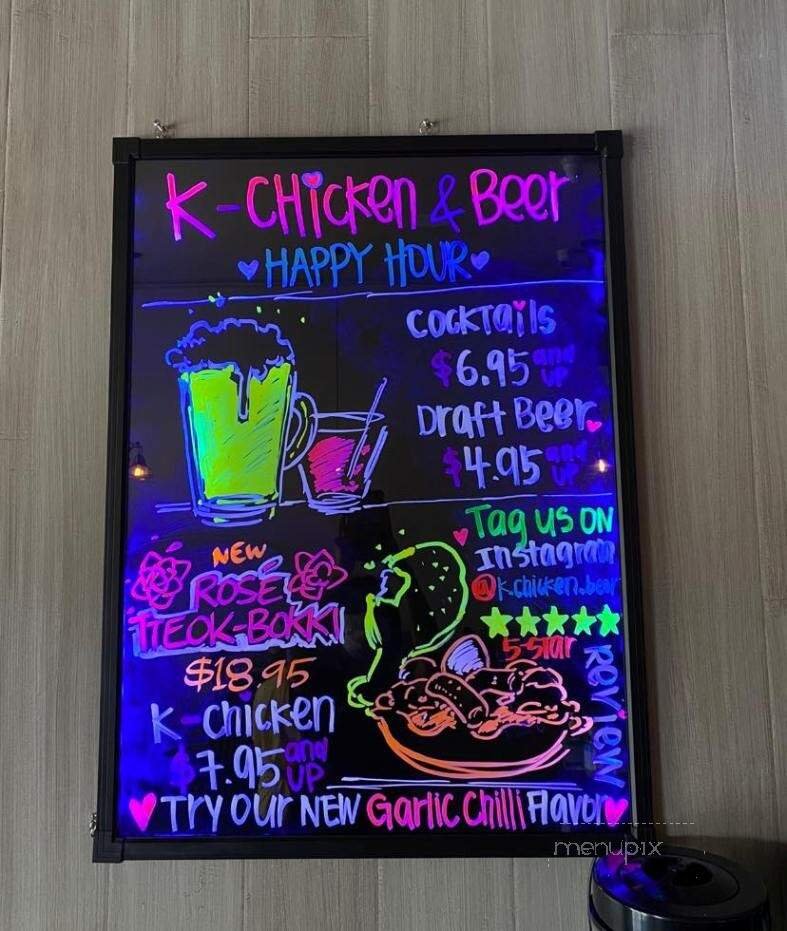 K-CHicken & Beer
HAPPY HOUR
COCKTails
$6.95 and UP
Draft Beer
$4.95 and UP
Tag us ON
Instagram
@k.chicken.beer
5-Star
Review
NEW
ROSÉ
TTEOK-BOKKI
$18.95
K-chicken
$7.95 and UP
Try our NEW Garlic Chilli Flavor
menupix